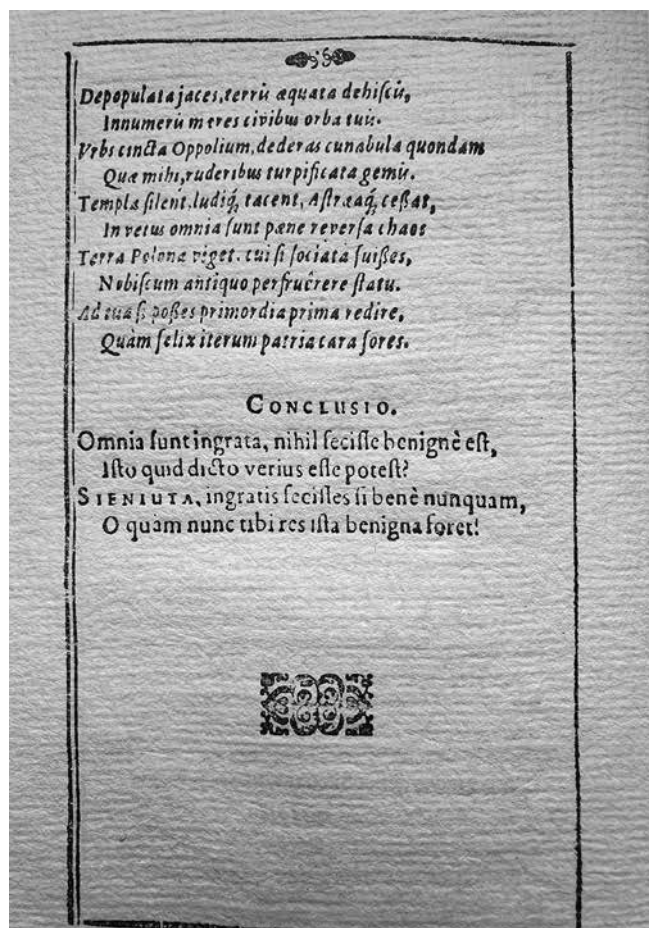 Depopulata jaces, terris æquata dehiscis,
Innumeris mæres civibus orba tuis.
Vrbs cincta Oppolium, dederas cunabula quondam
Quæ mihi, ruderibus turpificata gemis.
Templa silent, ludiq́; tacent, Astræaq́; ceßat,
In vetus omnia sunt pæne reversa chaos
Terra Polona viget. cui si sociata fuißes,
Nobiscum antiquo perfruêrere statu.
Ad tua si poßes primordia prima redire,
Quàm felix iterum patria cara fores.
CONCLUSIO.
Omnia sunt ingrata, nihil fecisse benignè est,
Isto quid dicto verius esse potest?
SIENIUTA, ingratis fecisses si benè nunquam,
O quàm nunc tibi res ista benigna foret!